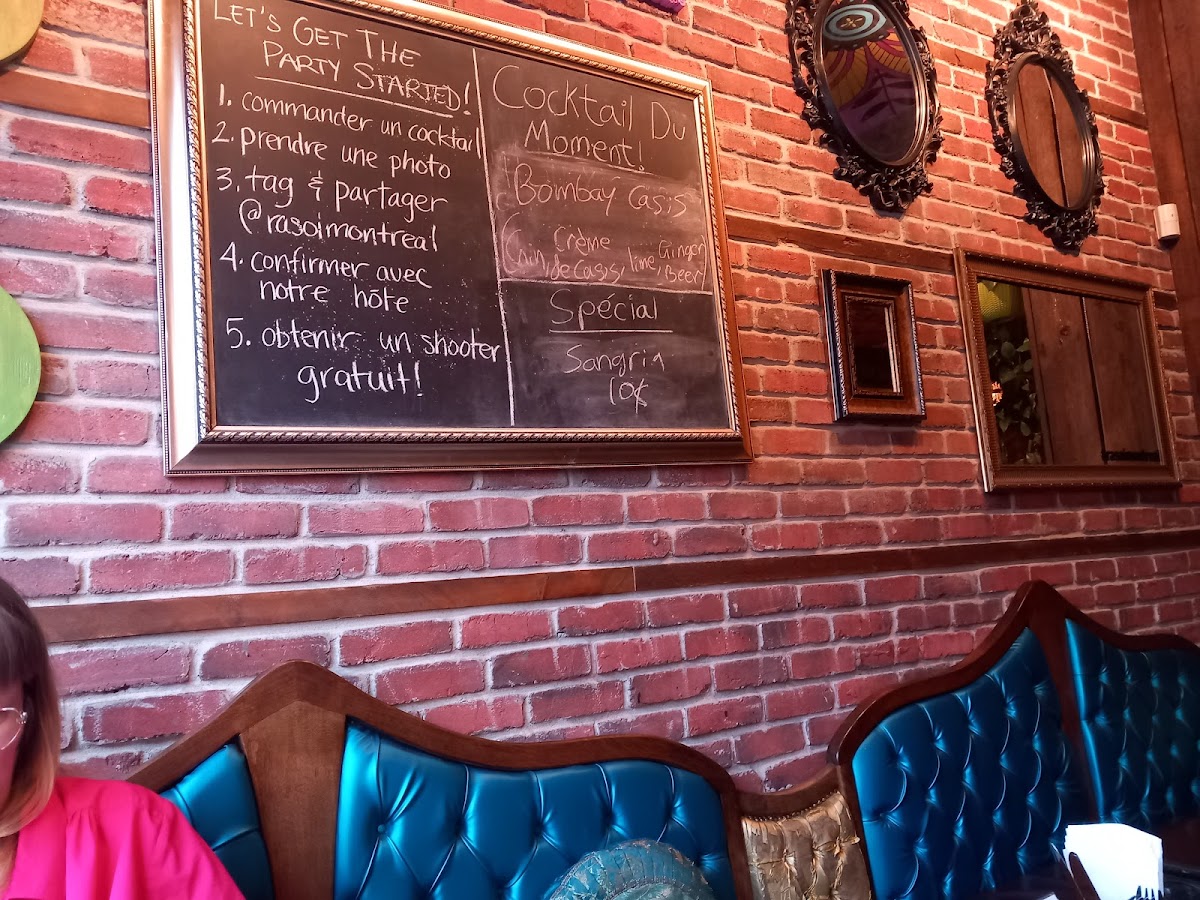 LET'S GET THE
PARTY STARTED!
1. commander un cocktail
2. prendre une photo
3. tag & partager
@rasoimontreal
4. confirmer avec
notre hôte
5. obtenir un shooter
gratuit!
Cocktail Du
Moment!
Bombay Casis
Crème
(Gin, de Casis, lime, Ginger
Beer)
Spécial
Sangria
10$